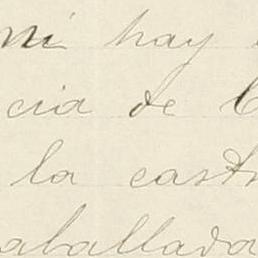 ni hay
cia de
la cast
aballada